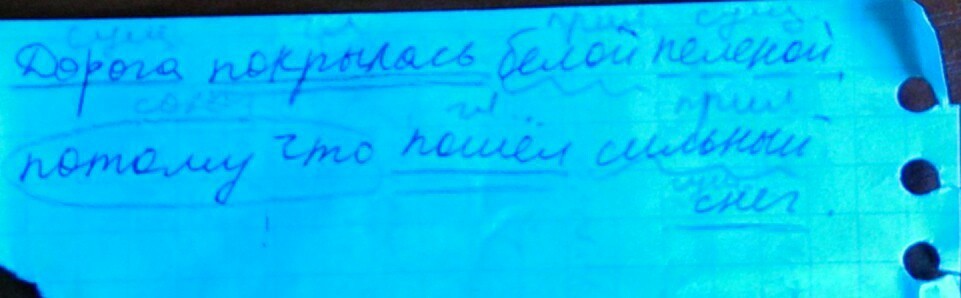 сущ гл прил сущ
Дорога покрылась белой пеленой,
союз гл прил
потому что пошёл сильный
сущ
снег.